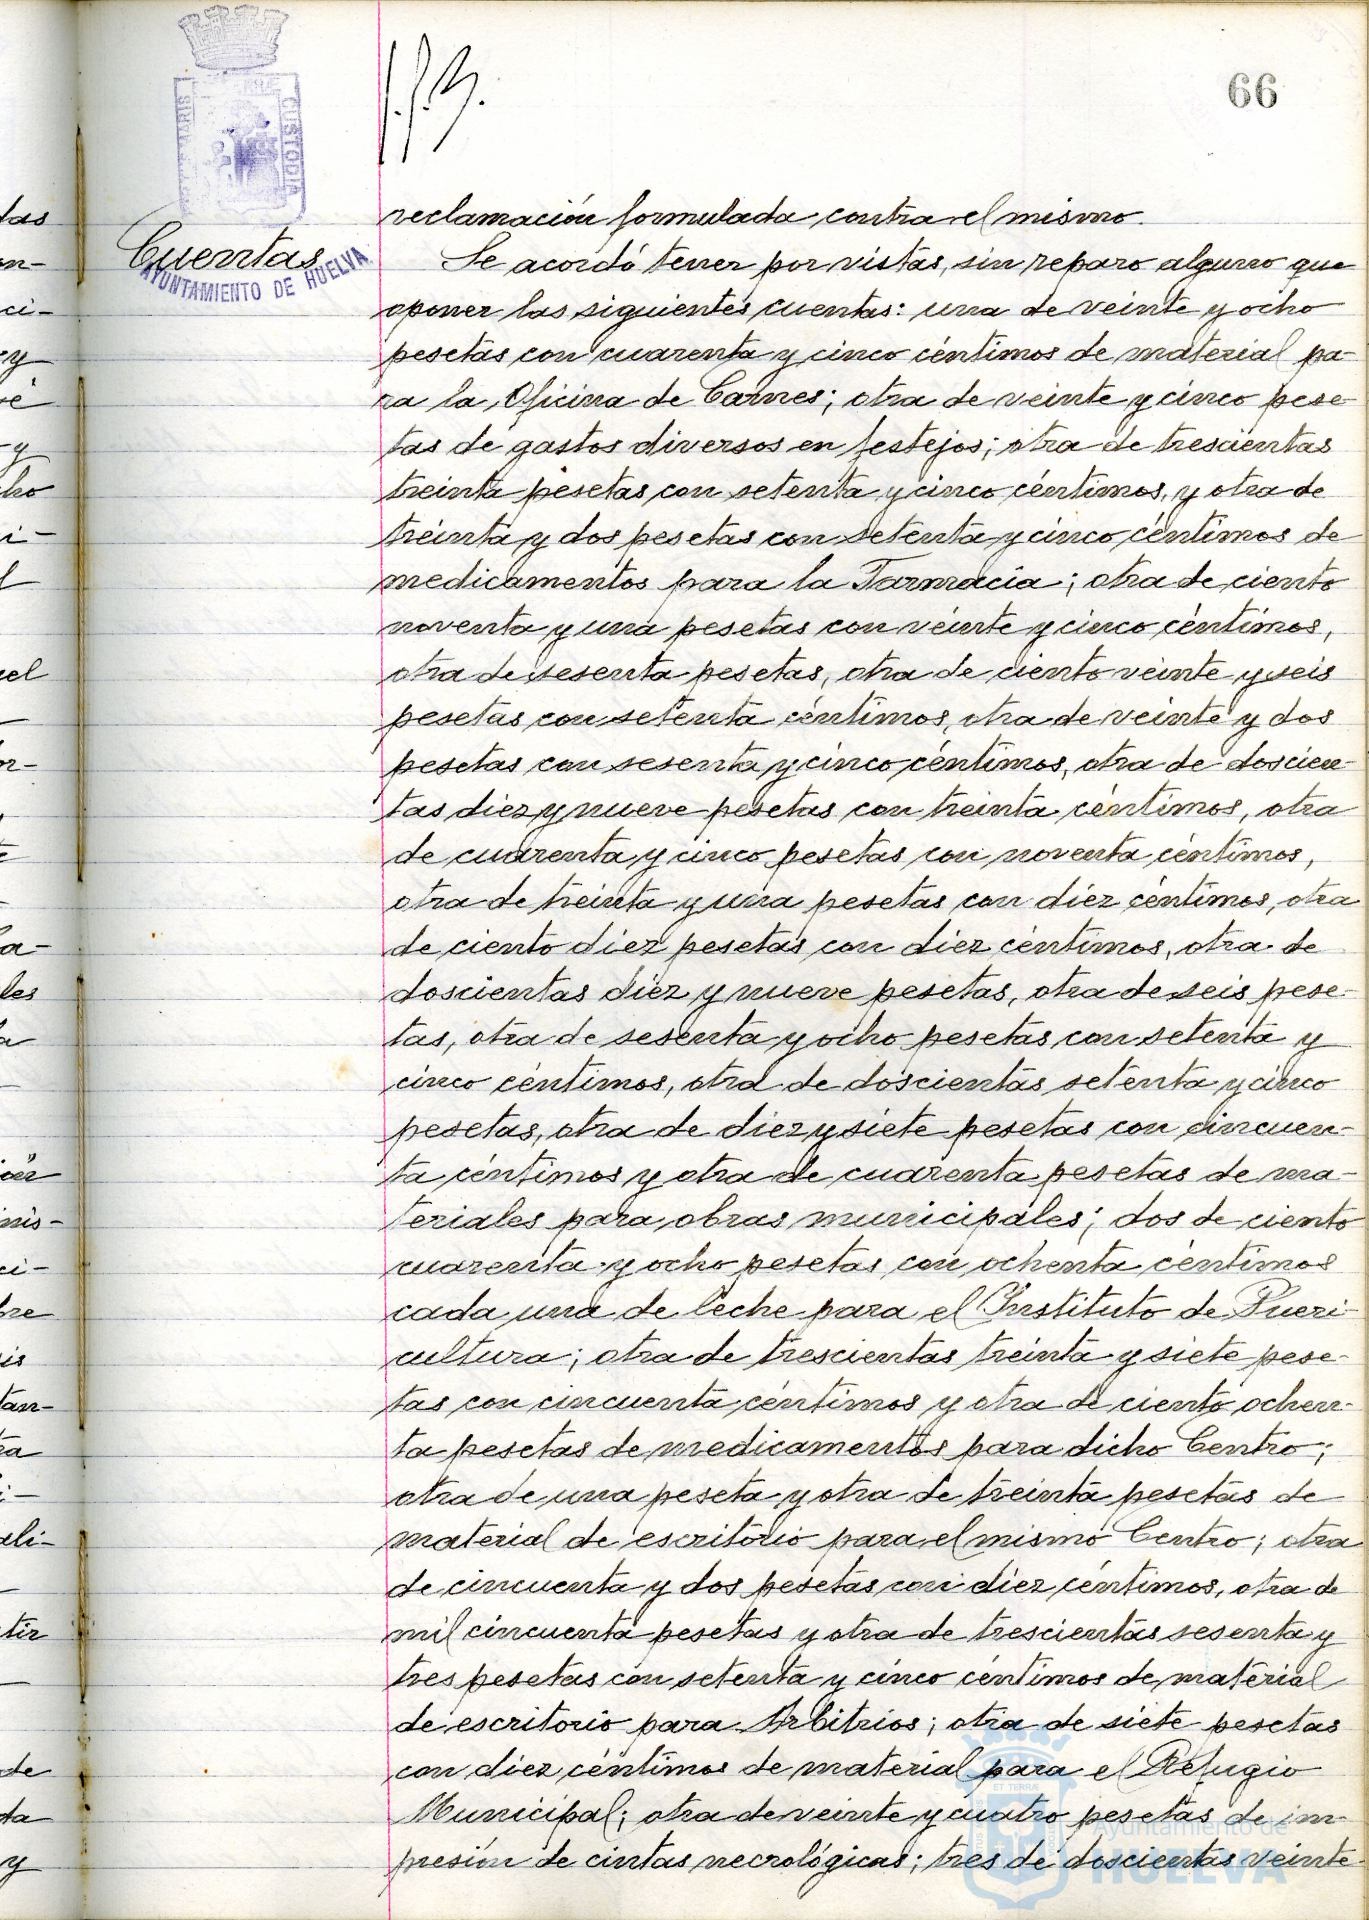 66
MARIS
CUSTODIA
AYUNTAMIENTO DE HUELVA
Cuentas
reclamación formulada contra el mismo.
Se acordó tener por vistas, sin reparo alguno que
oponer las siguientes cuentas: una de veinte y ocho
pesetas con cuarenta y cinco céntimos de material pa-
ra la Oficina de Carnes; otra de veinte y cinco pese-
tas de gastos diversos en festejos; otra de trescientas
treinta pesetas con setenta y cinco céntimos, y otra de
treinta y dos pesetas con setenta y cinco céntimos de
medicamentos para la Farmacia; otra de ciento
noventa y una pesetas con veinte y cinco céntimos,
otra de sesenta pesetas, otra de ciento veinte y seis
pesetas con setenta céntimos, otra de veinte y dos
pesetas con sesenta y cinco céntimos, otra de doscien-
tas diez y nueve pesetas con treinta céntimos, otra
de cuarenta y cinco pesetas con noventa céntimos,
otra de treinta y una pesetas con diez céntimos, otra
de ciento diez pesetas con diez céntimos, otra de
doscientas diez y nueve pesetas, otra de seis pese-
tas, otra de sesenta y ocho pesetas con setenta y
cinco céntimos, otra de doscientas setenta y cinco
pesetas, otra de diez y siete pesetas con cincuen-
ta céntimos y otra de cuarenta pesetas de ma-
teriales para obras municipales; dos de ciento
cuarenta y ocho pesetas con ochenta céntimos
cada una de leche para el Instituto de Pueri-
cultura; otra de trescientas treinta y siete pese-
tas con cincuenta céntimos y otra de ciento ochen-
ta pesetas de medicamentos para dicho Centro;
otra de una peseta y otra de treinta pesetas de
material de escritorio para el mismo Centro; otra
de cincuenta y dos pesetas con diez céntimos, otra de
mil cincuenta pesetas y otra de trescientas sesenta y
tres pesetas con setenta y cinco céntimos de material
de escritorio para Arbitrios; otra de siete pesetas
con diez céntimos de material para el Refugio
Municipal; otra de veinte y cuatro pesetas de im-
presión de cintas necrológicas; tres de doscientas veinte
Ayuntamiento de
HUELVA